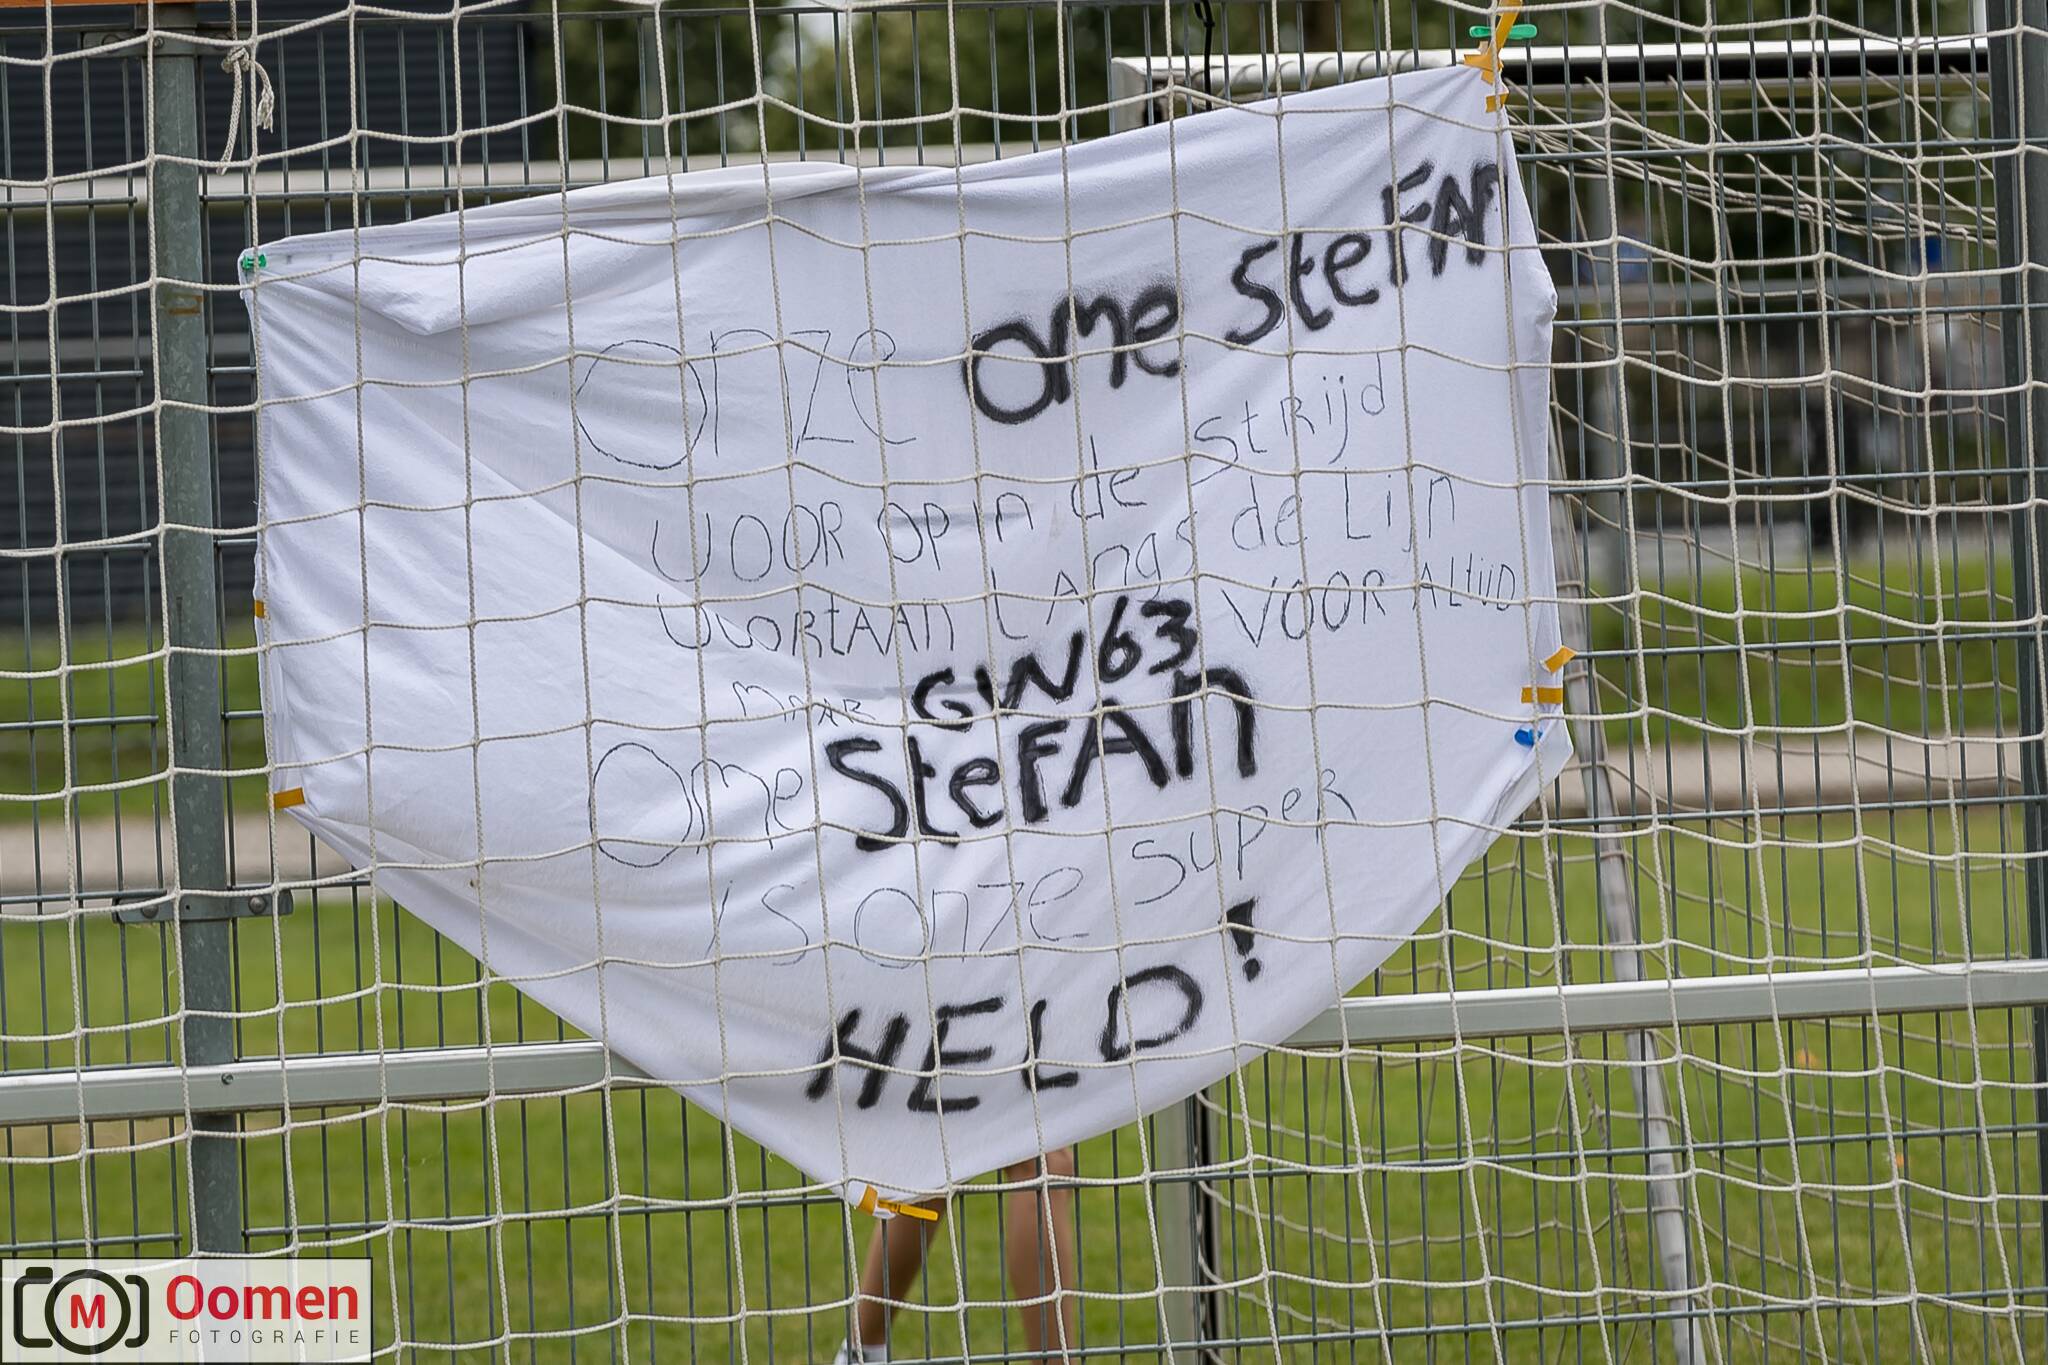 onze ome SteFAn
VOOR OP in de StRijd
VOORtAAn LAngs de Lijn
MAAR GW63 VOOR ALtijD
Ome SteFAn
is onze SupeR
HELD!
M Oomen
FOTOGRAFIE